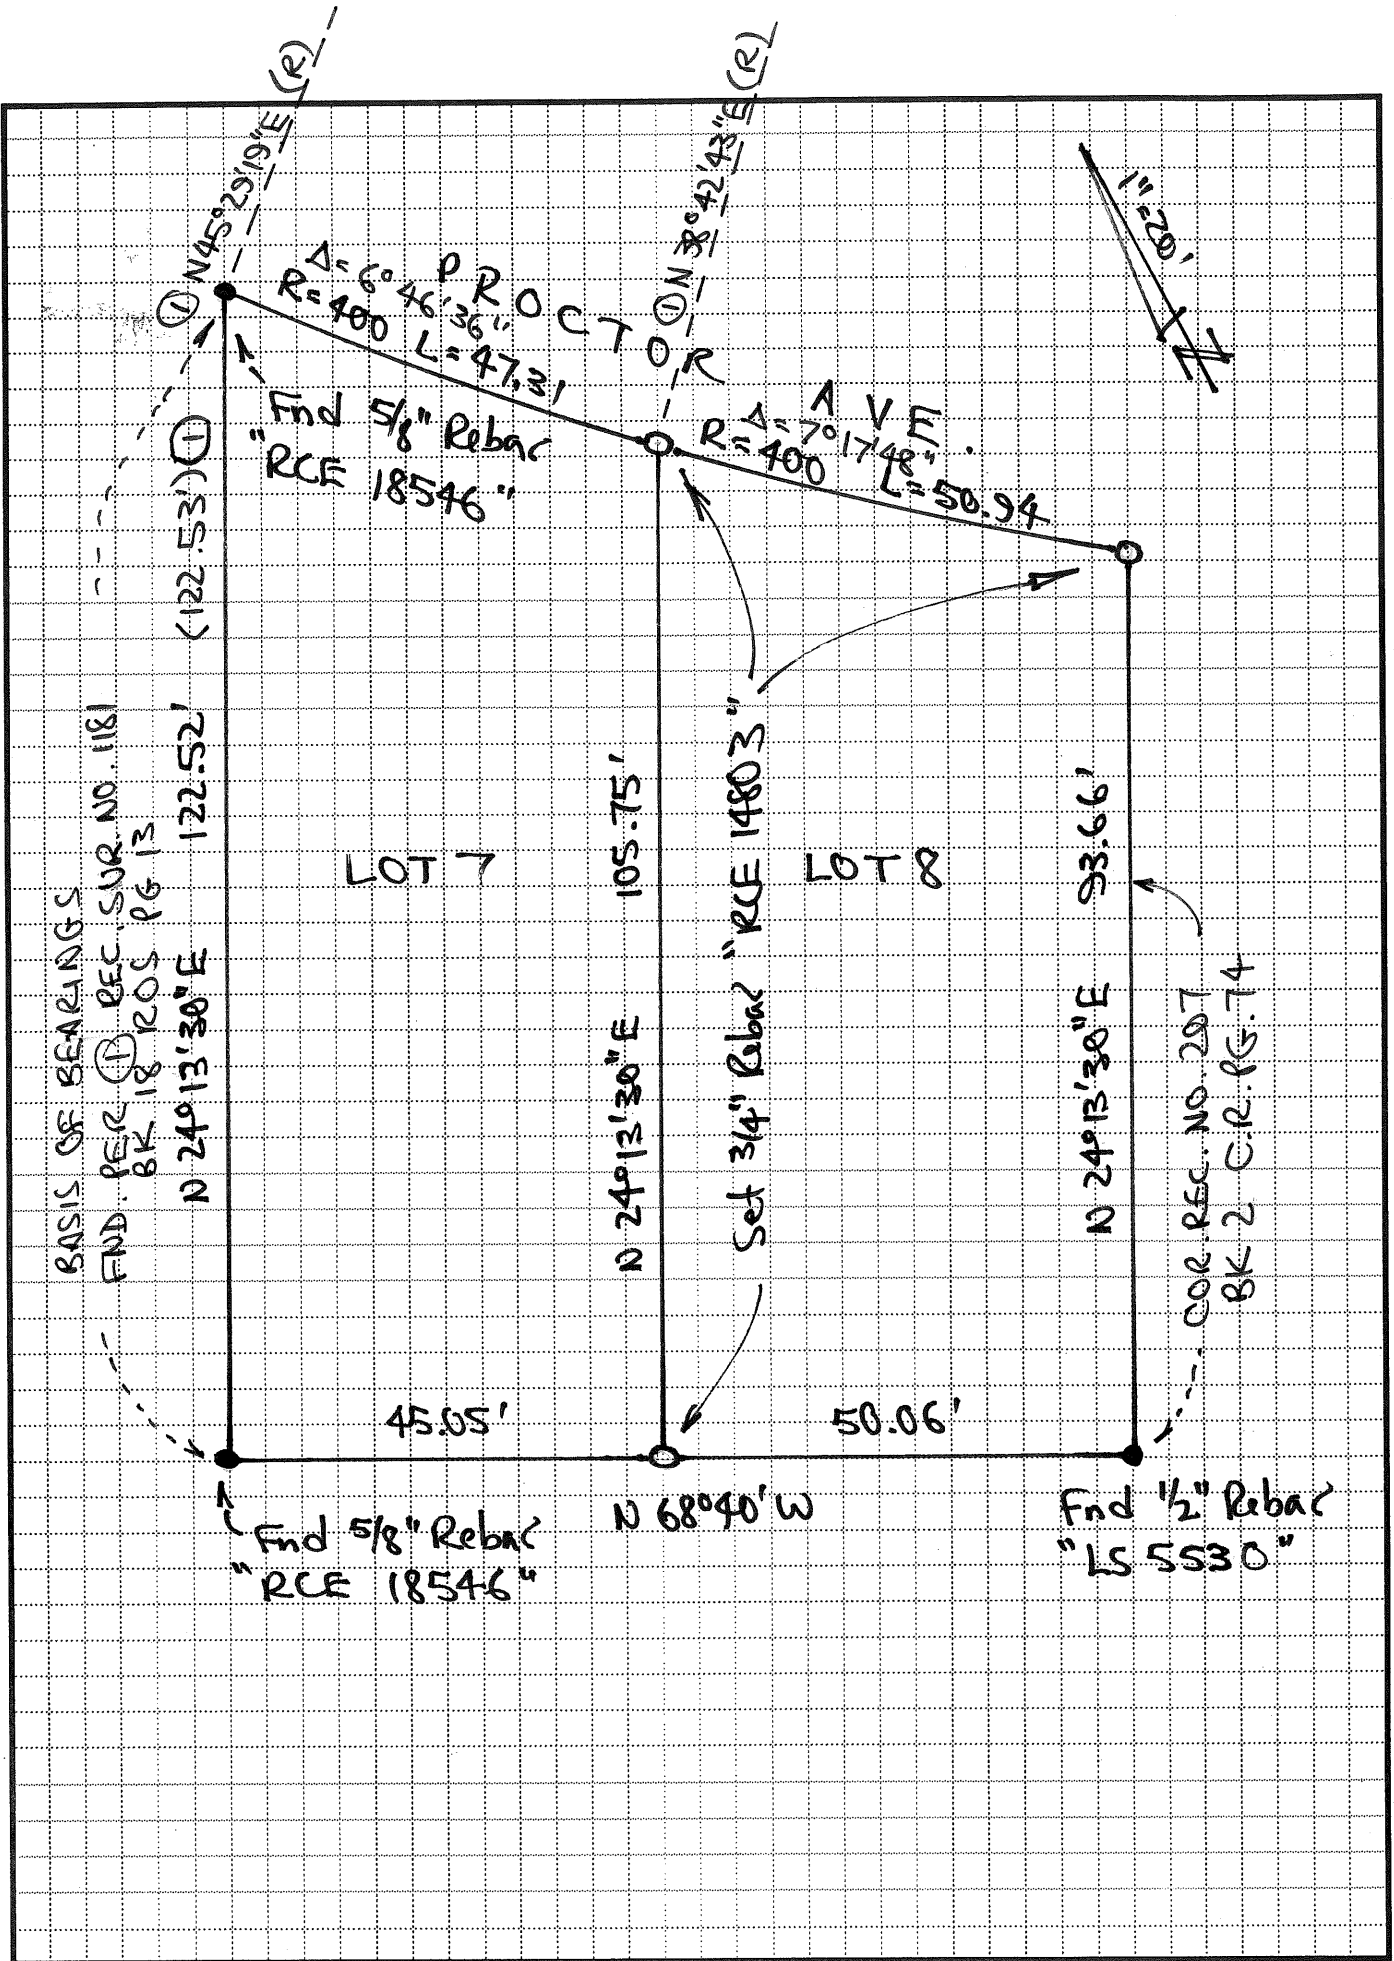 ① N45°29'19"E (R)
① N 38°42'43"E (R)
1"=20'
N
PROCTOR AVE.
Δ= 6°46'36"
R=400 L=47.31
Δ= 7°17'48"
R=400 L=50.94
Fnd 5/8" Rebar
"RCE 18546"
BASIS OF BEARINGS
FND. PER ① REC. SUR. NO. 1181
BK 18 ROS PG 13
N 24°13'30"E 122.52' (122.53') ①
LOT 7
N 24°13'30"E 105.75'
Set 3/4" Rebar "RCE 14803"
LOT 8
N 24°13'30"E 93.66'
COR. REC. NO. 2007
BK 2 C.R. PG. 74
45.05'
50.06'
N 68°40' W
Fnd 5/8" Rebar
"RCE 18546"
Fnd 1/2" Rebar
"LS 5530"